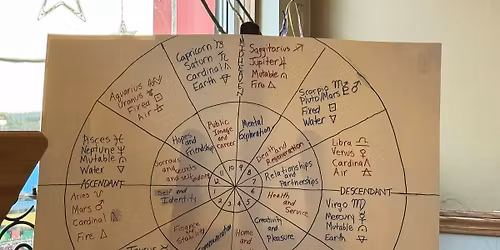 Capricorn ♑
Saturn ♄
Cardinal △
Earth
MIDHEAVEN
Saggitarius ♐
Jupiter ♃
Mutable
Fire △
Aquarius
Uranus
Fixed
Air
Scorpio ♏
Pluto/Mars
Fixed
Water ▽
Pisces ♓
Neptune ♆
Mutable
Water ▽
Hopes
and
Friendship
Public
Image
and
Career
Mental
Exploration
Death and
Regeneration
Libra ♎
Venus ♀
Cardinal
Air
and
Relationships
and
Partnerships
ASCENDANT
DESCENDANT
Self and
Identity
10 9
11 8
12 7
1 6
2 3 4 5
Health
and
Service
Aries ♈
Mars ♂
Cardinal
Fire △
Virgo ♍
Mercury ☿
Mutable
Earth
Finance
Stability
Communication
Home
and
Creativity
and
Pleasure